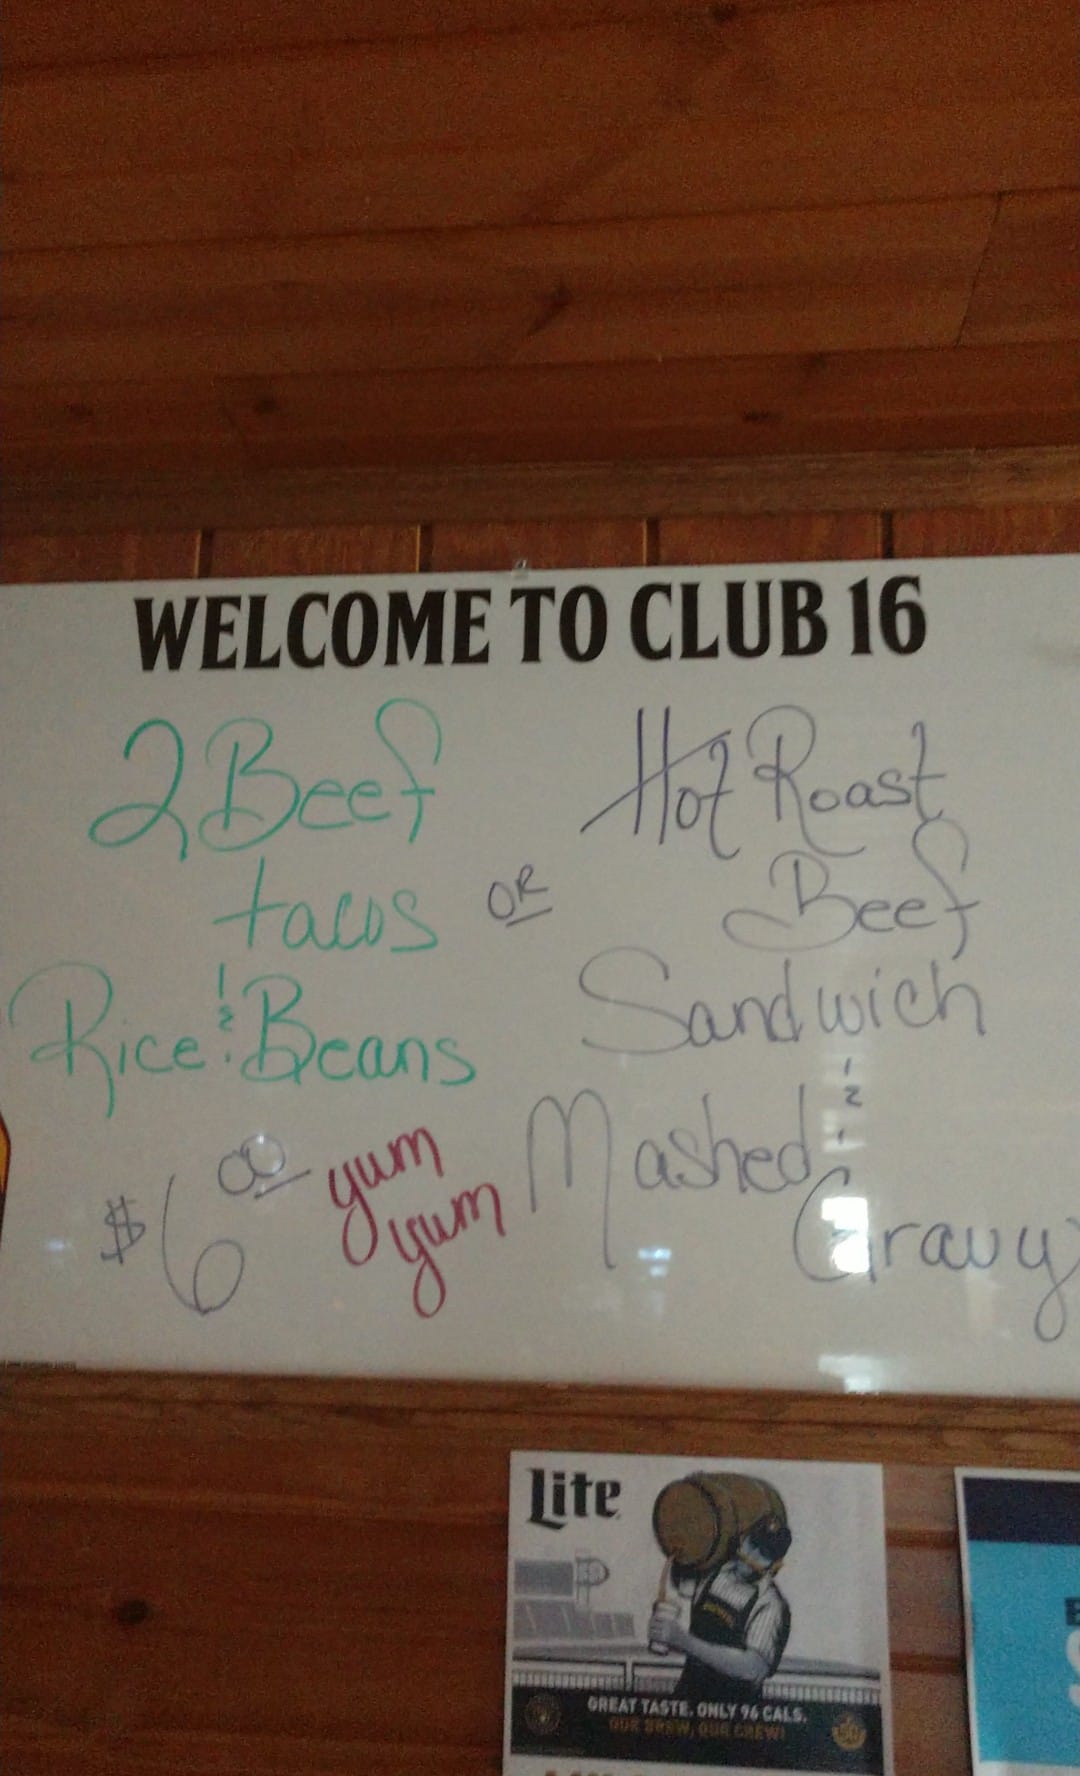 WELCOME TO CLUB 16
2 Beef
tacos
Rice & Beans
OR
Hot Roast
Beef
Sandwich
Mashed &
Gravy
$6.00
yum
yum
Lite
GREAT TASTE. ONLY 96 CALS.
OUR BREW, OUR CREW!